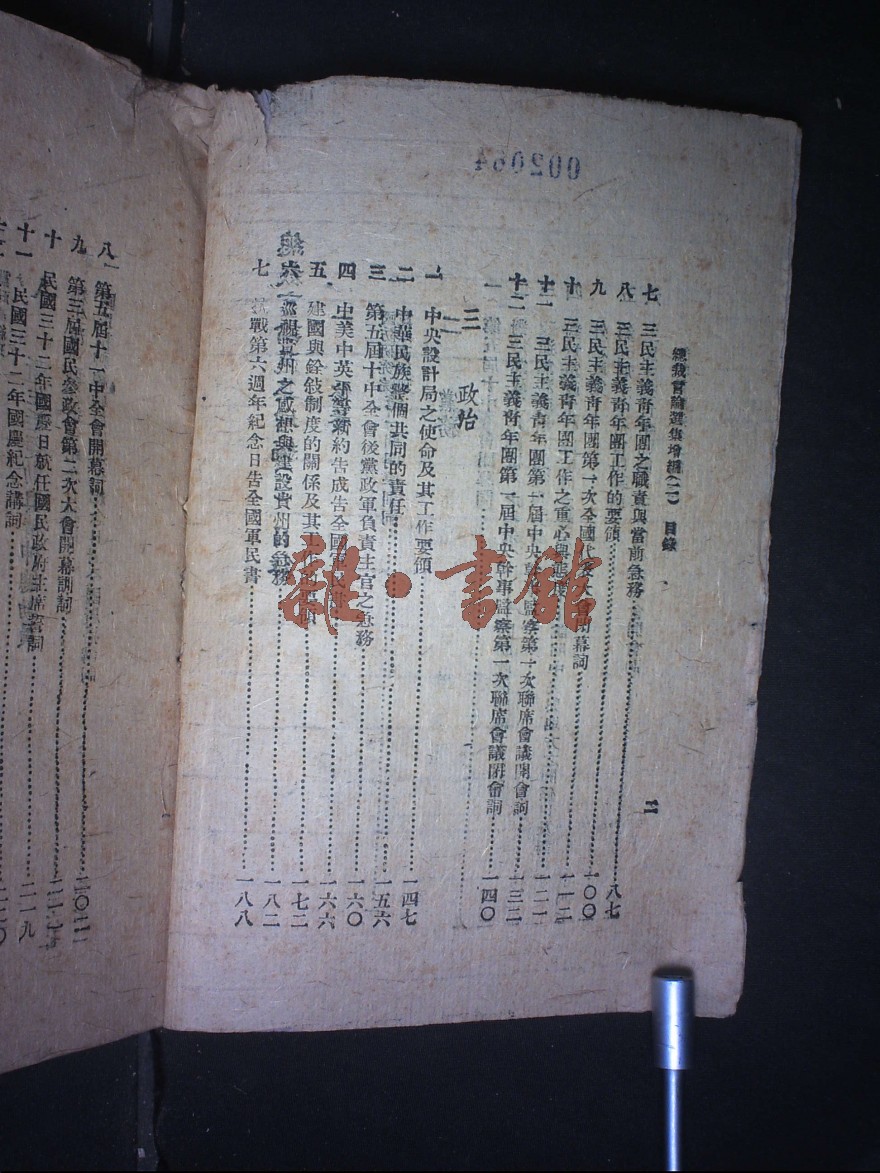 總裁言論選集增編(二) 目錄
二
七 三民主義青年團之職責與當前急務 八七
八 三民主義青年團工作的要領 一〇〇
九 三民主義青年團第一次全國代表大會開幕詞 一一二
十 三民主義青年團工作之重心與 一二一
十一 三民主義青年團第一屆中央幹事監察第一次聯席會議開會詞 一三二
十二 三民主義青年團第一屆中央幹事監察第一次聯席會議閉會詞 一四〇
三 政治
一 中央設計局之使命及其工作要領 一四七
二 中華民族整個共同的責任 一五六
三 第五屆十中全會後黨政軍負責主官之急務 一六〇
四 中美中英平等新約告成告全國軍民書 一六六
五 建國與銓敍制度的關係及其工作 一七二
六 巡視貴州之感想與建設貴州的急務 一八二
七 抗戰第六週年紀念日告全國軍民書 一八八
八 第五屆十一中全會開幕詞 二〇二
九 第三屆國民參政會第二次大會開幕訓詞
十 民國三十二年國慶日就任國民政府主席答詞 二一九
十一 民國三十二年國慶紀念講詞 二二〇
002064
雜·書館